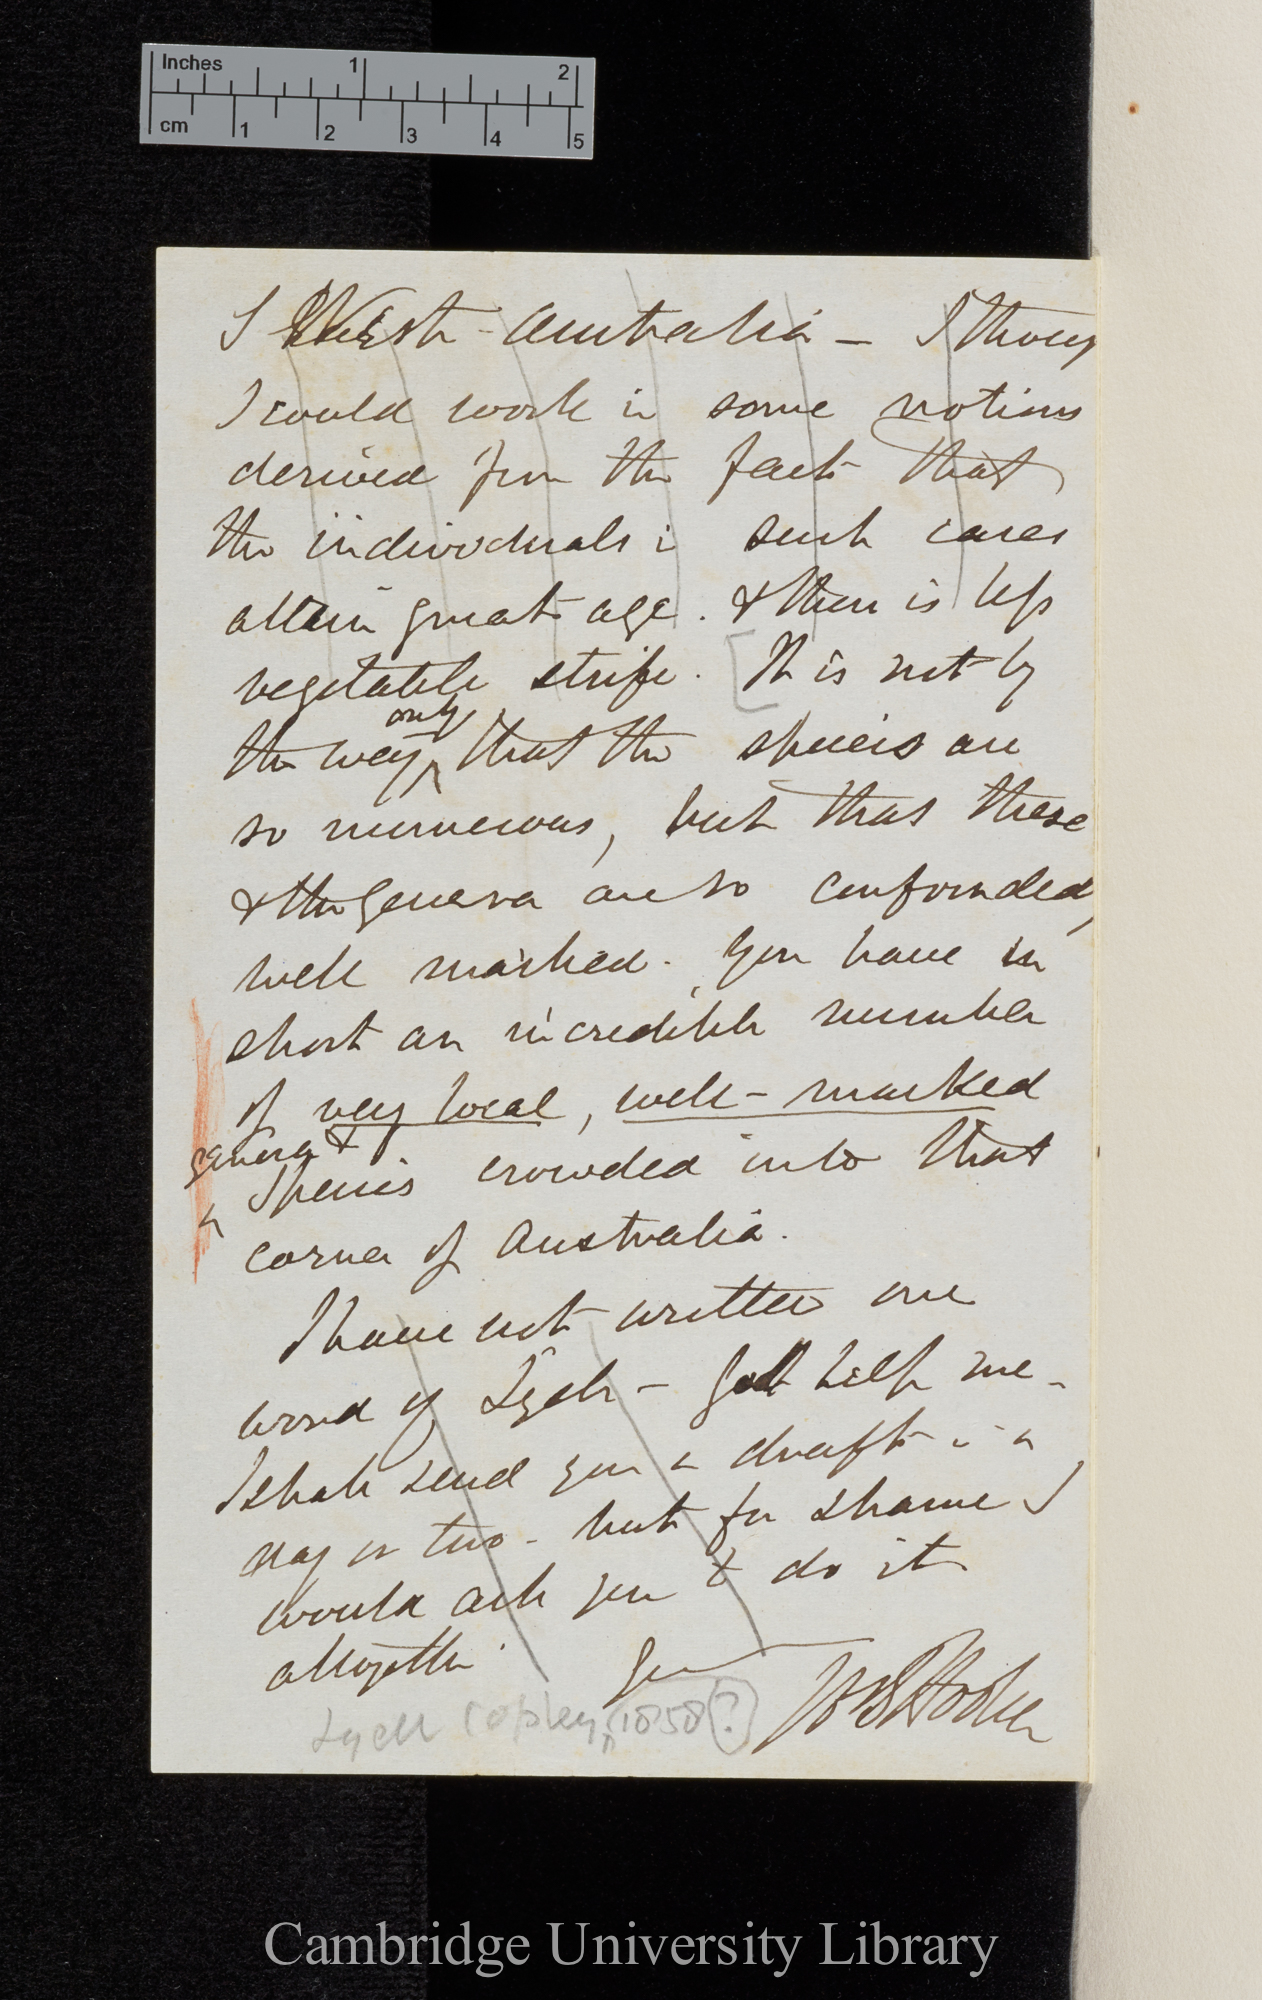 Inches 1 2
cm 1 2 3 4 5
S West-Australia — I thoug
I could work in some notions
derived from the fact that
the individuals in such cases
attain great age. & there is less
vegetable strife. It is not by
only
the way that the species are
so numerous, but that these
& the genera are so confounded,
well marked. You have in
short an incredible number
of very local, well-marked
genera &
species crowded into that
corner of Australia.
I have not written one
word of Lyell — God help me —
I shall send you a draft in a
day or two — but for shame I
would ask you to do it
altogether.
Yrs
Jos D Hooker
Lyell Copley, 1858 (?)
Cambridge University Library